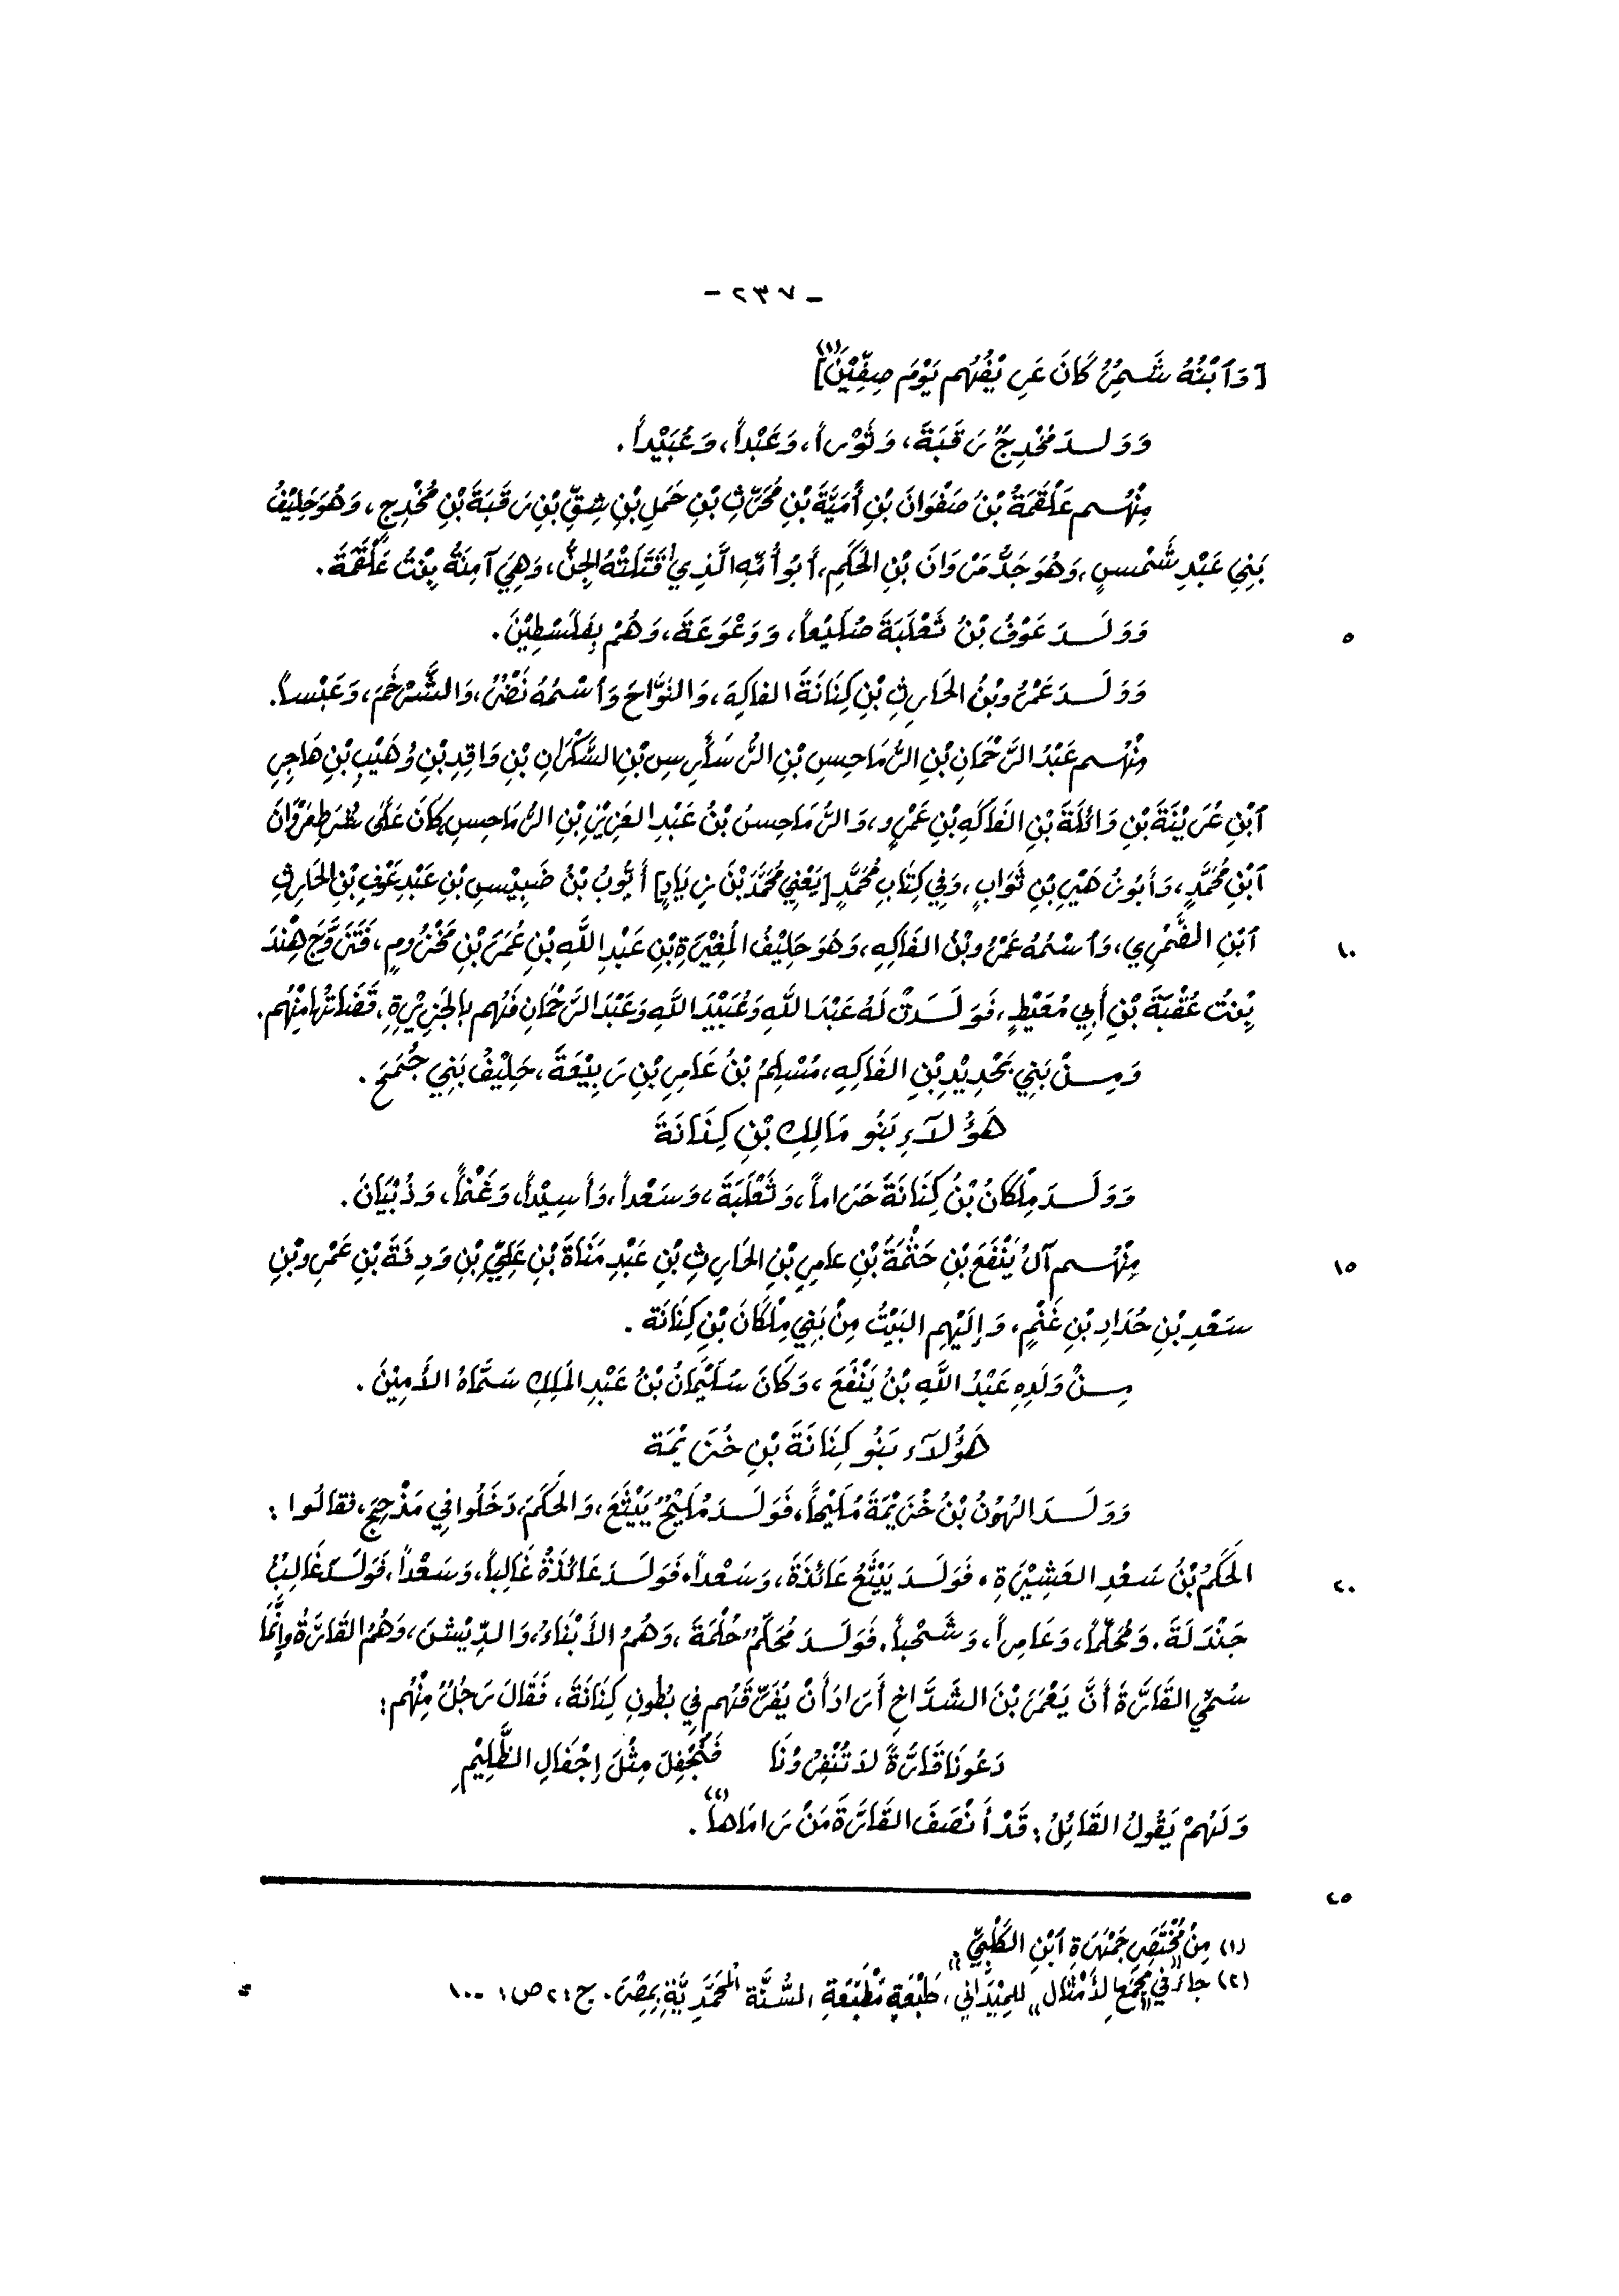 - ٢٣٧ -
[وَٱبْنُهُ شَمِرُ كَانَ عَرِيْفُهُم يَوْمَ صِفِّيْنَ](١)
وَوَلَدَ مُخْدِجٌ رَقَبَةَ، وَثَوْراً، وَعَبْداً، وَعُبَيْداً.
مِنْهُم عَلْقَمَةُ بْنُ صَفْوَانَ بْنِ أُمَيَّةَ بْنِ مُحَرِّثِ بْنِ حَمَلِ بْنِ شِقِّ بْنِ رَقَبَةَ بْنِ مُخْدِجٍ، وَهُوَ حَلِيْفُ
بَنِي عَبْدِ شَمْسٍ، وَهُوَ جَدُّ مَرْوَانَ بْنِ الحَكَمِ، أَبُو أُمِّهِ الَّذِي قَتَلَتْهُ الجِنُّ، وَهِيَ آمِنَةُ بِنْتُ عَلْقَمَةَ.
٥ وَوَلَدَ عَوْفُ بْنُ ثَعْلَبَةَ ضُلَيْعاً، وَوَعْوَعَةَ، وَهُمْ بِفَلَسْطِيْنَ.
وَوَلَدَ عَمْرُو بْنُ الحَارِثِ بْنِ كِنَانَةَ الفاكِهَ، وَالنَّوَّاحَ وَٱسْمُهُ نَضْرُ، وَالشَّرْخَمَ، وَعَبْساً.
مِنْهُم عَبْدُ الرَّحْمَانِ بْنِ الرُّمَاحِسِ بْنِ الرُّسَارِسِ بْنِ السَّكْرَانِ بْنِ وَاقِدِ بْنِ وُهَيْبِ بْنِ هَاجِرِ
ٱبْنِ عُرَيْنَةَ بْنِ وَائِلَةَ بْنِ الفَاكِهِ بْنِ عَمْرٍو، وَالرُّمَاحِسُ بْنُ عَبْدِ العَزِيْزِ بْنِ الرُّمَاحِسِ كَانَ عَلَى شُرَطِ مَرْوَانَ
ٱبْنِ مُحَمَّدٍ، وَأَبُو زُهَيْرِ بْنِ ثَوَابٍ، وَفِي كِتَابِ مُحَمَّدٍ [يَعْنِي مُحَمَّدَ بْنَ زِيَادٍ] أَيُّوبُ بْنُ ضَبِيْسِ بْنِ عَبْدِ عَوْفِ بْنِ الحَارِثِ
١٠ ٱبْنِ الضَّمْرِي، وَٱسْمُهُ عَمْرُو بْنُ الفَاكِهِ، وَهُوَ حَلِيْفُ المُغِيْرَةِ بْنِ عَبْدِ اللَّهِ بْنِ عُمَرَ بْنِ مَخْزُومٍ، فَتَزَوَّجَ هِنْدَ
بِنْتُ عُقْبَةَ بْنِ أَبِي مُعَيْطٍ، فَوَلَدَتْ لَهُ عَبْدَ اللَّهِ وَعُبَيْدَ اللَّهِ وَعَبْدَ الرَّحْمَانِ فَهُم بِالجَزِيْرَةِ، قُضَاتُهَا مِنْهُم.
وَمِنْ بَنِي بَحْدِيْدِ بْنِ الفَاكِهِ، مُسْلِمُ بْنُ عَامِرِ بْنِ رَبِيْعَةَ، حَلِيْفُ بَنِي جُمَحَ.
هَؤُلَآءِ بَنُو مَالِكِ بْنِ كِنَانَةَ
وَوَلَدَ مِلْكَانُ بْنُ كِنَانَةَ حَرَاماً، وَثَعْلَبَةَ، وَسَعْداً، وَأَسِيْداً، وَغَنْماً، وَذُبْيَانَ.
١٥ مِنْهُم آلُ يَنْفَعَ بْنِ حَثْمَةَ بْنِ عَامِرِ بْنِ الحَارِثِ بْنِ عَبْدِ مَنَاةَ بْنِ عَلِيِّ بْنِ وَدِقَةَ بْنِ عَمْرِو بْنِ
سَعْدِ بْنِ حُدَادِ بْنِ غَنْمٍ، وَإِلَيْهِم البَيْتُ مِنْ بَنِي مِلْكَانَ بْنِ كِنَانَة.
مِنْ وَلَدِهِ عَبْدُ اللَّهِ بْنُ يَنْفَعَ، وَكَانَ سُلَيْمَانُ بْنُ عَبْدِ المَلِكِ سَمَّاهُ الأَمِيْنَ.
هَؤُلَآءِ بَنُو كِنَانَةَ بْنِ خُزَيْمَةَ
وَوَلَدَ الهُوْنُ بْنُ خُزَيْمَةَ مُلَيْحاً، فَوَلَدَ مُلَيْحٌ يَيْثَعَ، وَالحَكَمَ، دَخَلُوا فِي مَذْحِجَ، فقالُوا :
٢٠ الحَكَمُ بْنُ سَعْدِ العَشِيْرَةِ. فَوَلَدَ يَيْثَعُ عَائِذَةَ، وَسَعْداً، فَوَلَدَ عَائِذَةُ غَالِباً، وَسَعْداً، فَوَلَدَ غَالِبُ
جَنْدَلَةَ. وَمُحَلِّماً، وَعَامِراً، وَشَحْباً. فَوَلَدَ مُحَلِّمٌ حُلْمَةَ، وَهُمُ الأَبْنَاءُ، وَالدِّيْشَ، وَهُمُ القَارَةُ وإِنَّمَا
سُمِّيَ القَارَةَ أَنَّ يَعْمَرَ بْنَ الشَّدَّاخِ أَرَادَ أَنْ يُفَرِّقَهُم فِي بُطُونِ كِنَانَةَ، فَقَالَ رَجُلٌ مِنْهُم:
دَعُونَا قَارَةً لَا تُنْفِرُونَا فَنُجْفِلَ مِثْلَ إِجْفَالِ الظَّلِيْمِ
وَلَهُمْ يَقُولُ القَائِلُ: قَدْ أَنْصَفَ القَارَةَ مَنْ رَامَاها(٢).
٢٥
(١) مِنْ مُخْتَصَرِ جَمْهَرَةِ ٱبْنِ الكَلْبِيِّ.
(٢) جاءَ في «مَجْمَعِ الأَمْثال» للمِيْدَاني، طَبْعَةِ مَطْبَعَةِ السُّنَّةِ المُحَمَّدِيَّةِ بِمِصْرَ. ج:٢ ص: ١٠٠